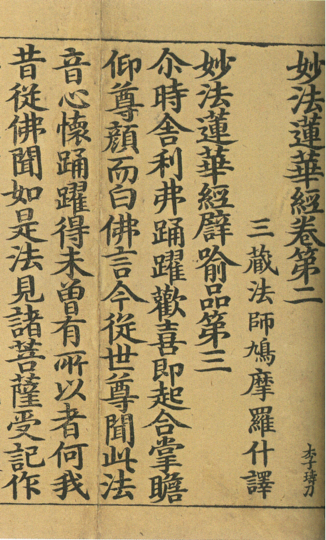 妙法蓮華經卷第二
三蔵法師鳩摩羅什譯
李瑋刀
妙法蓮華經辟喻品第三
尒時舍利弗踊躍歡喜即起合掌瞻
仰尊顔而白佛言今從世尊聞此法
音心懷踊躍得未曾有所以者何我
昔從佛聞如是法見諸菩薩受記作